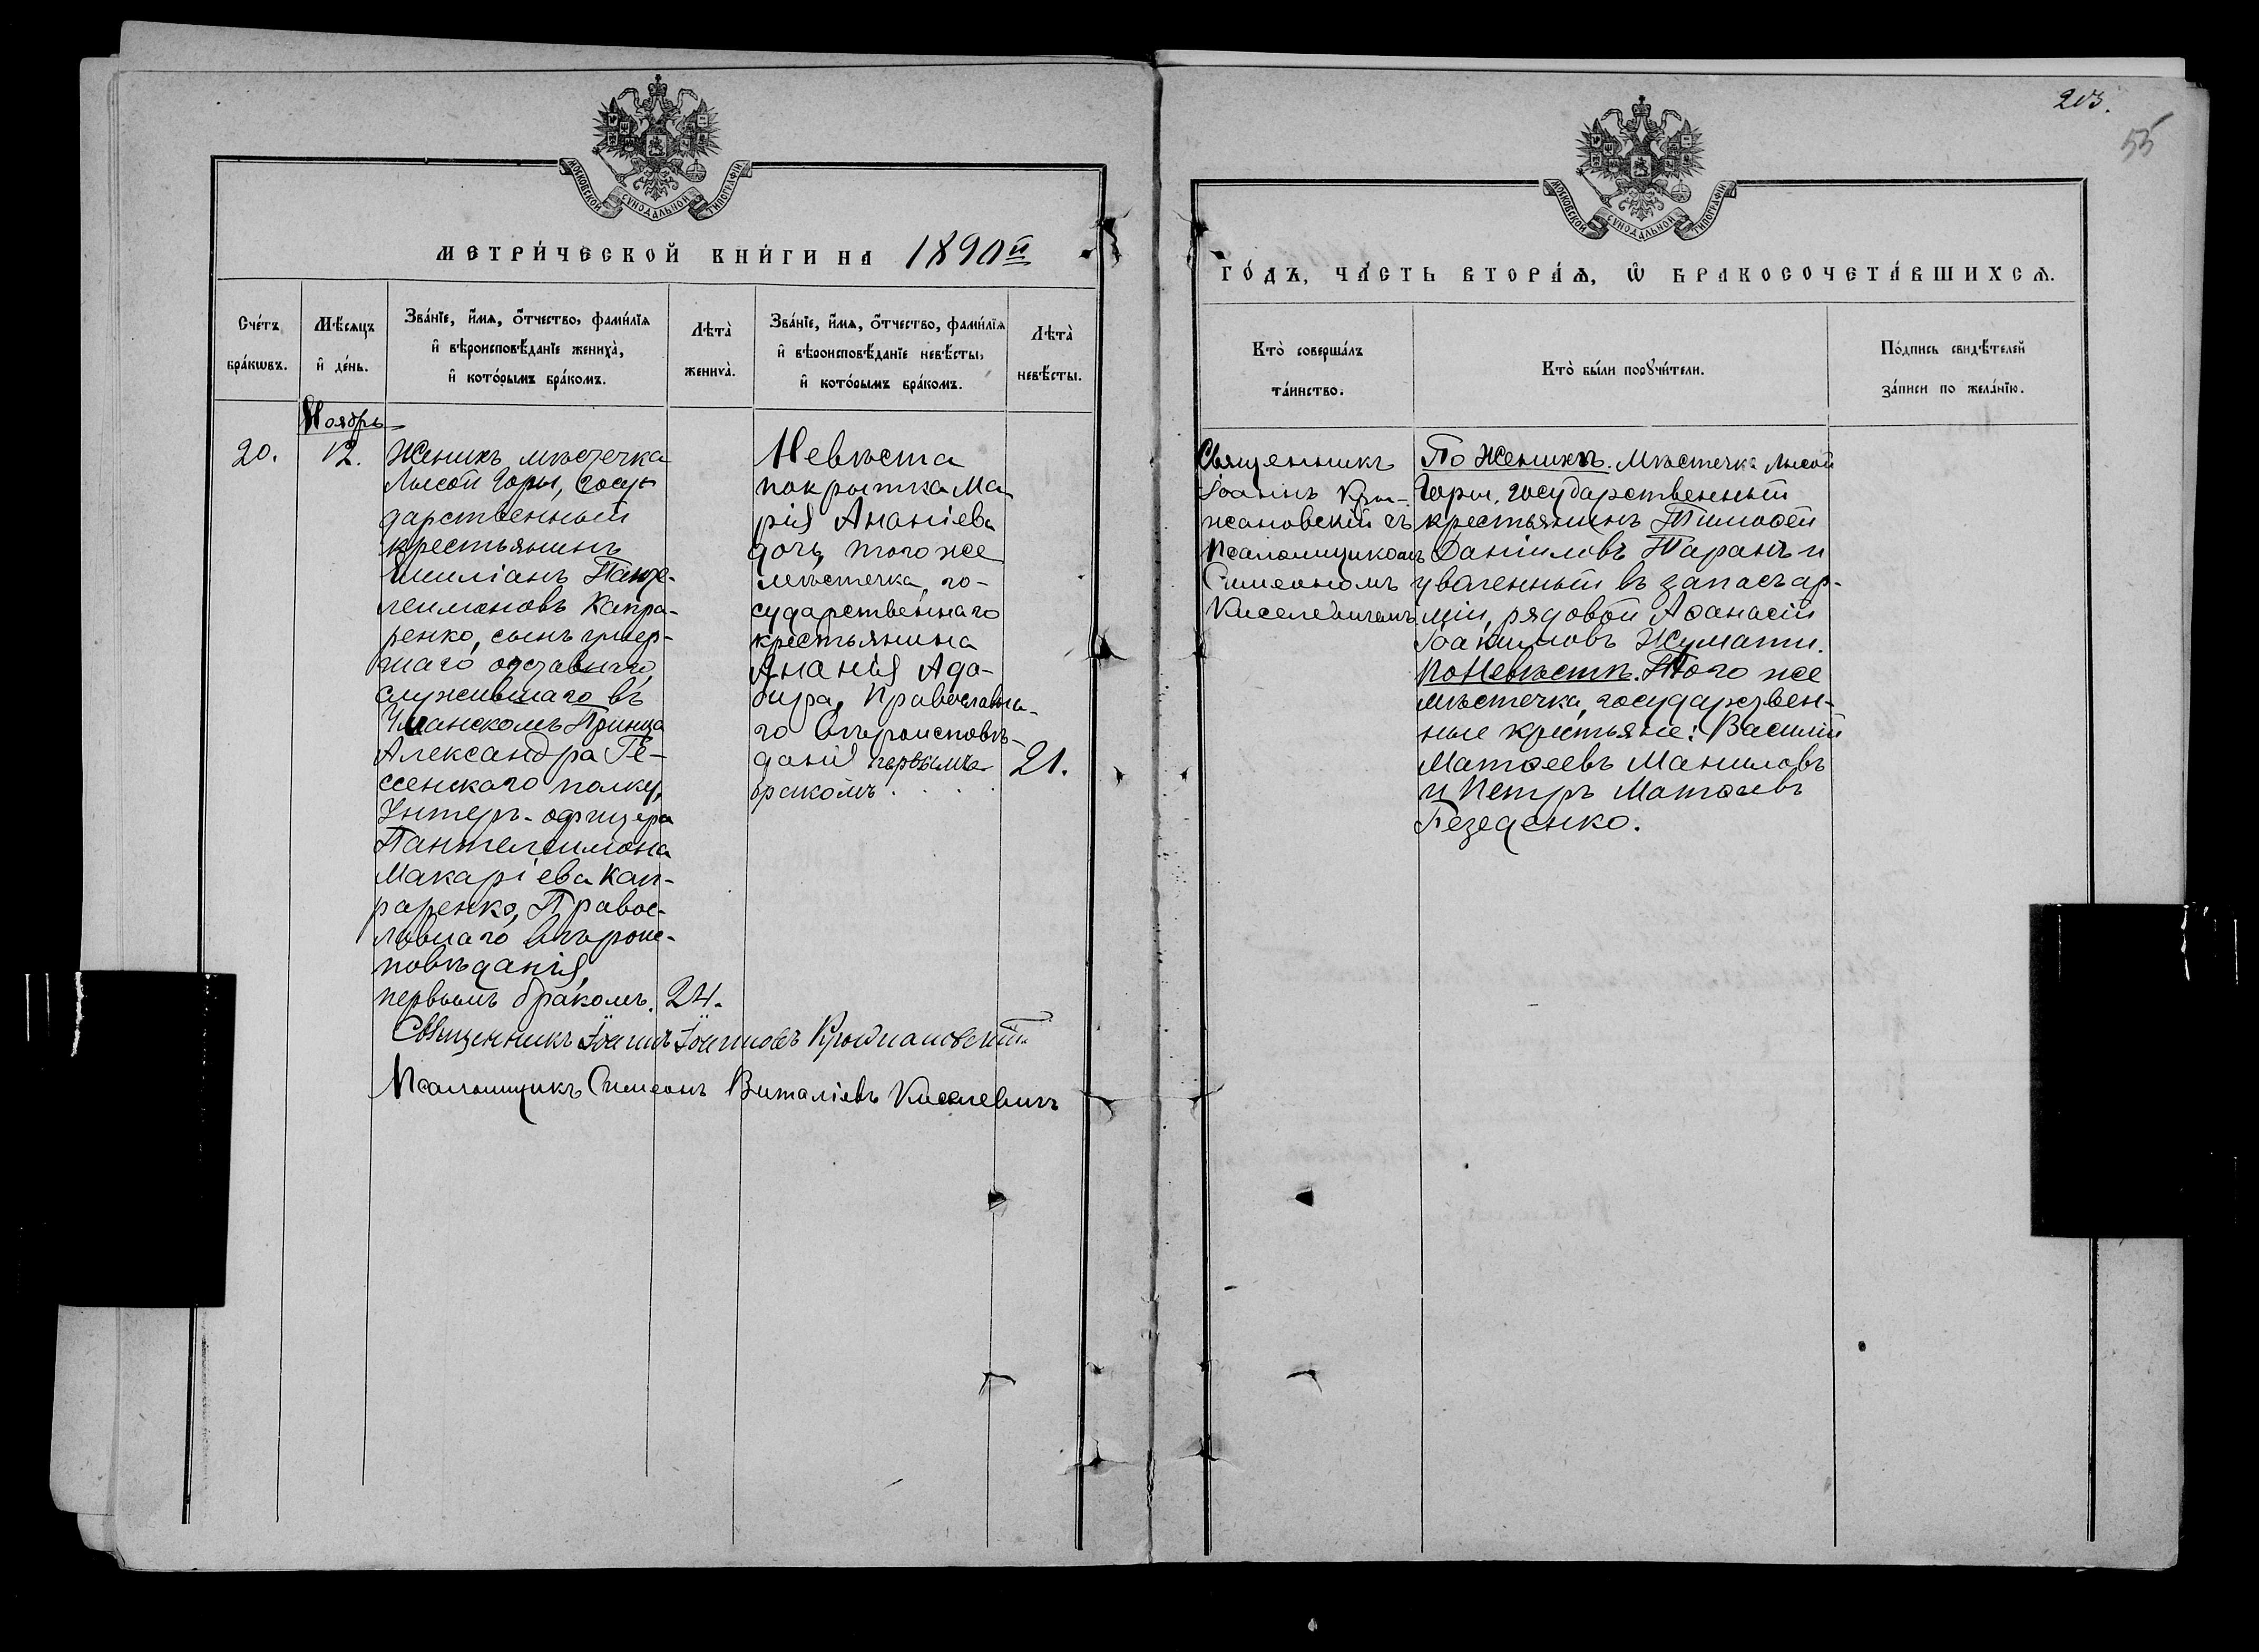 203.
55
МОСКОВСКОЙ СѴНОДАЛЬНОЙ ТИПОГРАФІИ
МОСКОВСКОЙ СѴНОДАЛЬНОЙ ТИПОГРАФІИ
МЕТРИ́ЧЕСКОЙ КНИ́ГИ НА 1890й
ГО́ДЪ, ЧА́СТЬ ВТОРА́Ѧ, Ѽ БРАКОСОЧЕТА́ВШИХСѦ.
Сче́тъ бра́кѡвъ.
Мѣ́сяцъ и҆ де́нь.
Зва́нїе, и҆́мѧ, ѻ҆́тчество, фами́лїѧ и҆ вѣроисповѣ́данїе жениха̀, и҆ кото́рымъ бра́комъ.
Лѣта̀ жениха̀.
Зва́нїе, и҆́мѧ, ѻ҆́тчество, фами́лїѧ и҆ вѣроисповѣ́данїе невѣ́сты, и҆ кото́рымъ бра́комъ.
Лѣта̀ невѣ́сты.
Кто̀ соверша́лъ та́инство.
Кто̀ бы́ли порꙋчи́тели.
По́дпись свидѣ́телей за́писи по жела́нїю.
Ноябрь
20.
12.
Женихъ мѣстечка
Лысой Горы, Госу-
дарственный
крестьянинъ
Емиліанъ Панте-
леимоновъ Капра-
ренко, сынъ умер-
шаго отставнаго,
служившаго въ
Уланскомъ Принца
Александра Ге-
ссенскаго полку,
Унтеръ-офицера
Пантелеимона
Макаріева Кап-
раренко, Правос-
лавнаго вѣроис-
повѣданія,
первымъ бракомъ.
24.
Невѣста
покрытка Ма-
рія Ананіева
дочь, того же
мѣстечка, го-
сударственнаго
крестьянина
Ананія Адо-
бира, Православна-
го вѣроисповѣ-
данія первымъ
бракомъ
21.
Священникъ
Іоаннъ Кры-
жановскій съ
Псаломщикомъ
Симеономъ
Киселевичемъ.
По Женихѣ. Мѣстечка Лысой
Горы, государственный
крестьянинъ Тимоѳей
Даніиловъ Таранъ и
уволенный въ запасъ ар-
міи, рядовой Аѳанасій
Іоакимовъ Жумати.
По Невѣстѣ. Того же
мѣстечка, государствен-
ные крестьяне: Василій
Матѳеевъ Маниловъ
и Петръ Матѳеевъ
Безеденко.
Священникъ Іоаннъ Іоанновъ Крыжановскій
Псаломщикъ Симеонъ Виталіевъ Киселевичъ